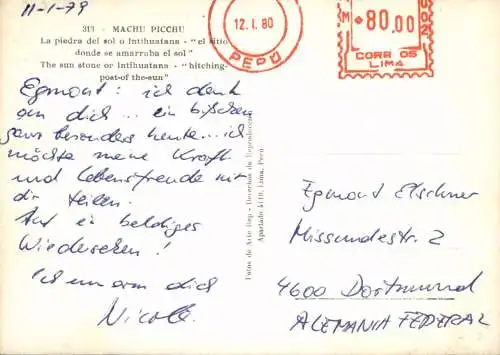 11-1-79
313 - MACHU PICCHU
La piedra del sol o Intihuatana - "el sitio
donde se amarraba el sol"
The sun stone or Intihuatana - "hitching-
post-of the-sun"
12. I. 80
PERÚ
M
80.00
CORREOS
LIMA
Egmont: ich denk
an dich... ein bißchen
ganz besonders heute... ich
möchte meine Kraft
und Lebensfreude mit
dir teilen.
Auf ein baldiges
Wiedersehen!
Ich umarm dich
Nicole.
Fotos de Arte Rep - Derechos de Reproducción
Apartado 4110, Lima, Perú
Egmont Elschner
Missundestr. 2
4600 Dortmund
ALEMANIA FEDERAL